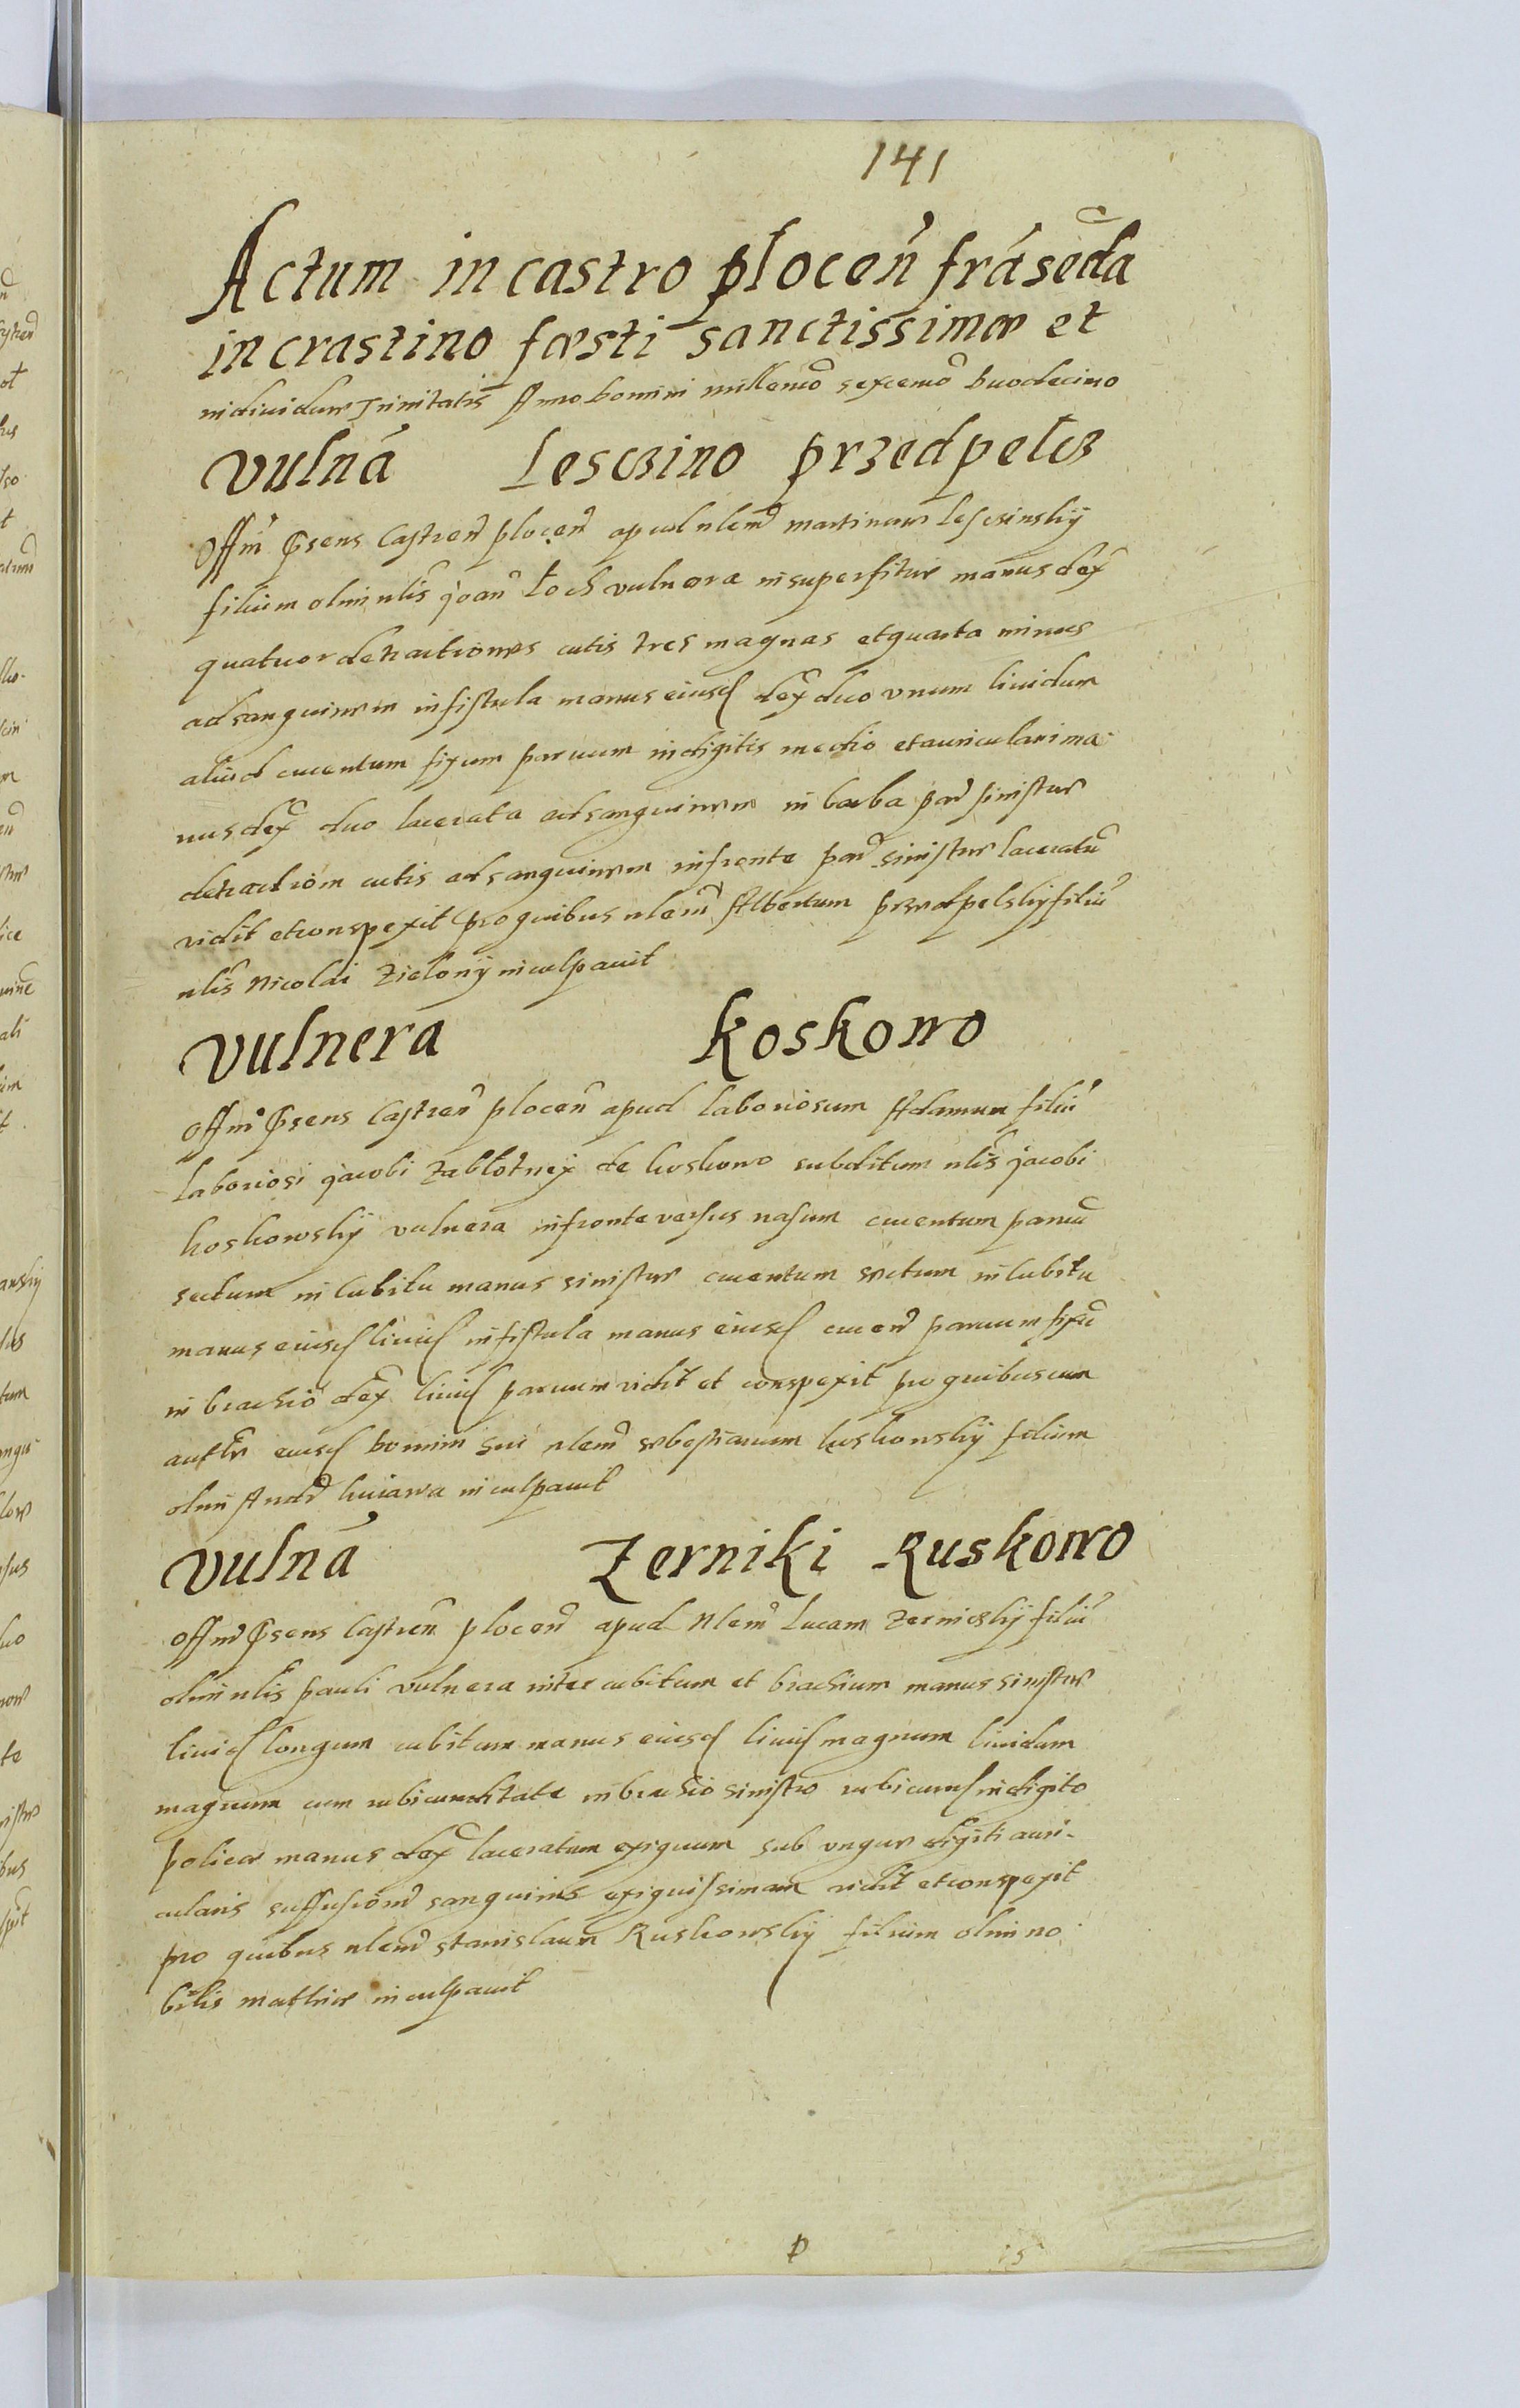 141
Actum in castro plocen̄ fra secda
in crastino fæsti sanctissimæ et
indiuiduæ Trinitatis Anno Domini millemo sexcemo Duodecimo
Vulna Lesczino przedpelcz
Offm Psens Castren plocen apud nlem martinum lesczinskij
filium olim nlis Joan Łoch vulnera in superfitie manus dex
quatuor detractiones cutis tres magnas et quarta minus
ad sanguinem in fistula manus eiusd dex duo vnum liuidum
aliud cruentum fixum paruum in digitis medio et auriculari ma-
nus dex duo lacerata ad sanguinem in barba par sinistræ
detraction cutis ad sanguinem in fronte par sinistræ laceratu
vidit et conspexit pro quibus nlem Albertum przedpelskij filiu
nlis Nicolai Zielonij inculpauit
Vulnera Koskowo
Offm Psens Castren plocen apud laboriosum Adamum filiu
laboriosi Jacobi Zabłotnej de koskowo subditum nlis Jacobi
koskowskij vulnera in fronte versus nasum cruentum paruu
sectum in cubitu manus sinistræ cruentum sectum in cubitu
manus eiusd liuid in fistula manus eiusd cruen paruum fixu
in brachio dex liuid paruum vidit et conspexit pro quibus cum
autte eiusd Domini sui nlem sebestianum koskowskij filium
olim Andr kuiawa inculpauit
Vulna Zerniki Ruskowo
Offm Psens Castren plocen apud Nlem Lucam Zernickij filiu
olim nlis pauli vulnera inter cubitum et brachium manus sinistræ
liuid longum cubitum manus eiusd liuid magnum liuidum
magnum cum rubicunditate in brachio sinistro rubicund in digito
police manus dex laceratum exiguum sub vngue digiti auri-
cularis suffusionem sanguinis exiguissimam vidit et conspexit
pro quibus nlem stanislaum Ruskowskij filium olim no-
bilis mathiæ inculpauit